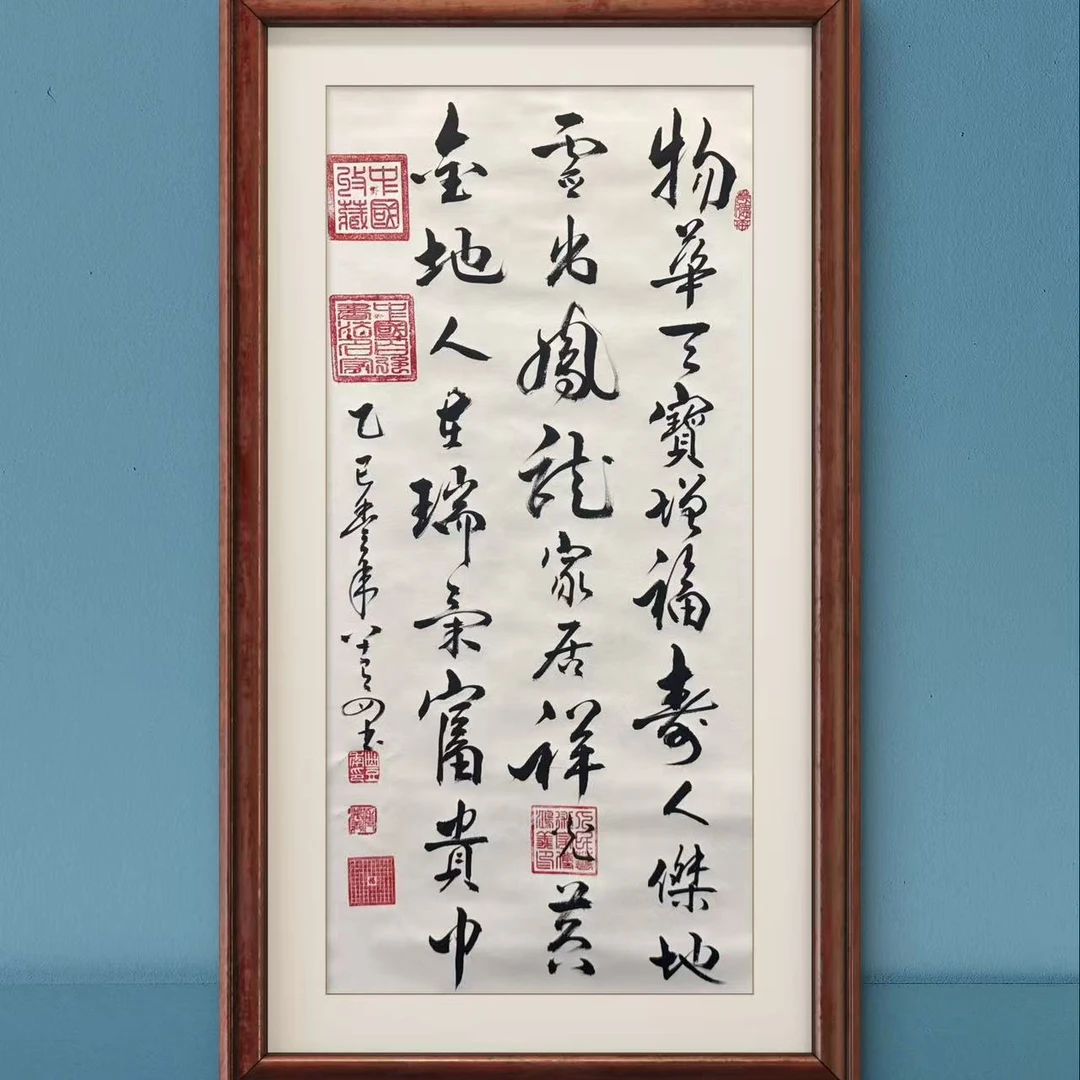 物華天寶增福壽人傑地
靈出鳳龍家居祥光黃
金地人在瑞氣富貴中
乙巳年八十四书
中國收藏
中國百強書法名家